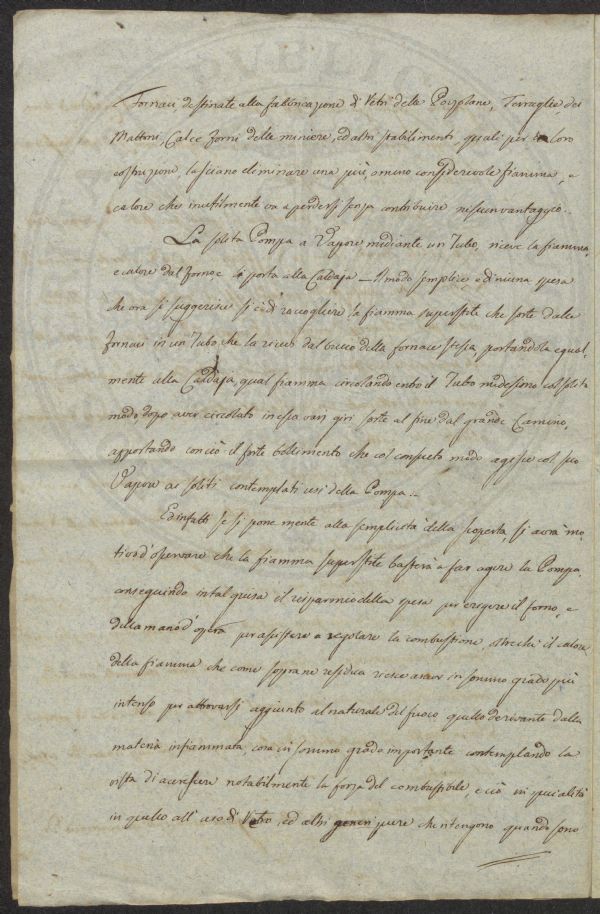 Fornaci destinate alla fabbricazione di Vetri delle Porzolane, Terraglie, dei
Mattoni, Calce Forni delle miniere, ed altri stabilimenti, quali per la loro
costruzione, lasciano eliminare una più, o meno considerevole fiamma, e
calore che inutilmente va a perdersi senza contribuire nissun vantaggio.
La solita Pompa a Vapore mediante un Tubo, riceve la fiamma,
e calore dal forno e la porta alla Caldaja – Il modo semplice e di niuna spesa
che ora si suggerisce si è di raccogliere la fiamma superstite che sorte dalle
Fornaci in un Tubo, che la riceve dal buco della fornace stessa, portandola equal-
mente alla Caldaja, qual fiamma circolando entro il Tubo medesimo col solito
modo, dopo aver circolato in essa varj giri sorte al fine dal grande Camino,
apportando con ciò il forte bollimento che col consueto modo agisce col suo
Vapore ai soliti contemplati usi della Pompa.
Ed infatti se si pone mente alla semplicità della scoperta, si avrà mo-
tivo d'osservare che la fiamma superstite basterà a far agire la Pompa,
conseguendo in tal guisa il risparmio della spesa per erigere il forno, e
della mano d'opera per assistere a regolare la combustione, stechè il calore
della fiamma che come sopra ne residua riesce ancor in sommo grado più
intenso per attrovarsi aggiunto al naturale del fuoco quello derivante dalla
materia infiammata, cosa in sommo grado importante contemplando la
vista di accrescere notabilmente la forza del combustibile, e ciò in specialità
in quello all'uso di Vetro, ed altri generi pure che ritengono quando sono